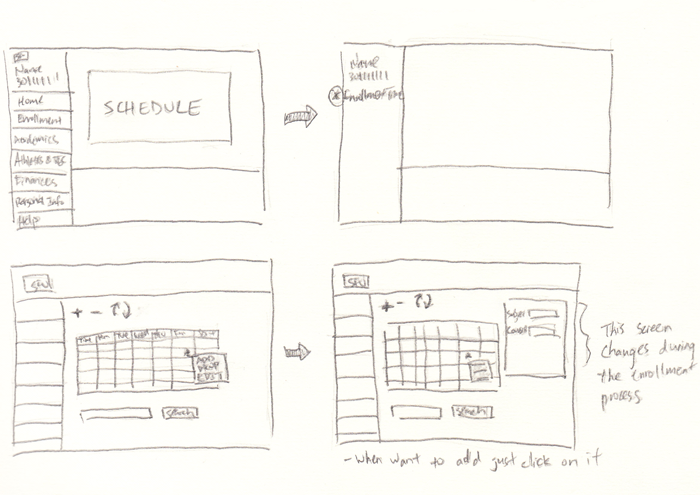 Name
30111111
Home
Enrollment
Academics
Finances
Personal Info
Help
SCHEDULE
Name
30111111
Enrollment
SFU
+ -
Time Mon Tue Wed
ADD
DROP
Search
SFU
+ -
Subject
Search
This screen
changes during
the enrollment
process.
- when want to add just click on it